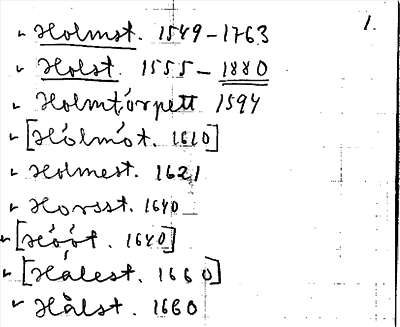 1.
✓ Holmst. 1549-1763
✓ Holst. 1555-1880
✓ Holmtórpett 1594
✓ [Hólmót. 1610]
✓ Holmest. 1621
✓ Horsst. 1640
✓ [Hóót. 1640]
✓ [Hålest. 1660]
✓ Hålst. 1660